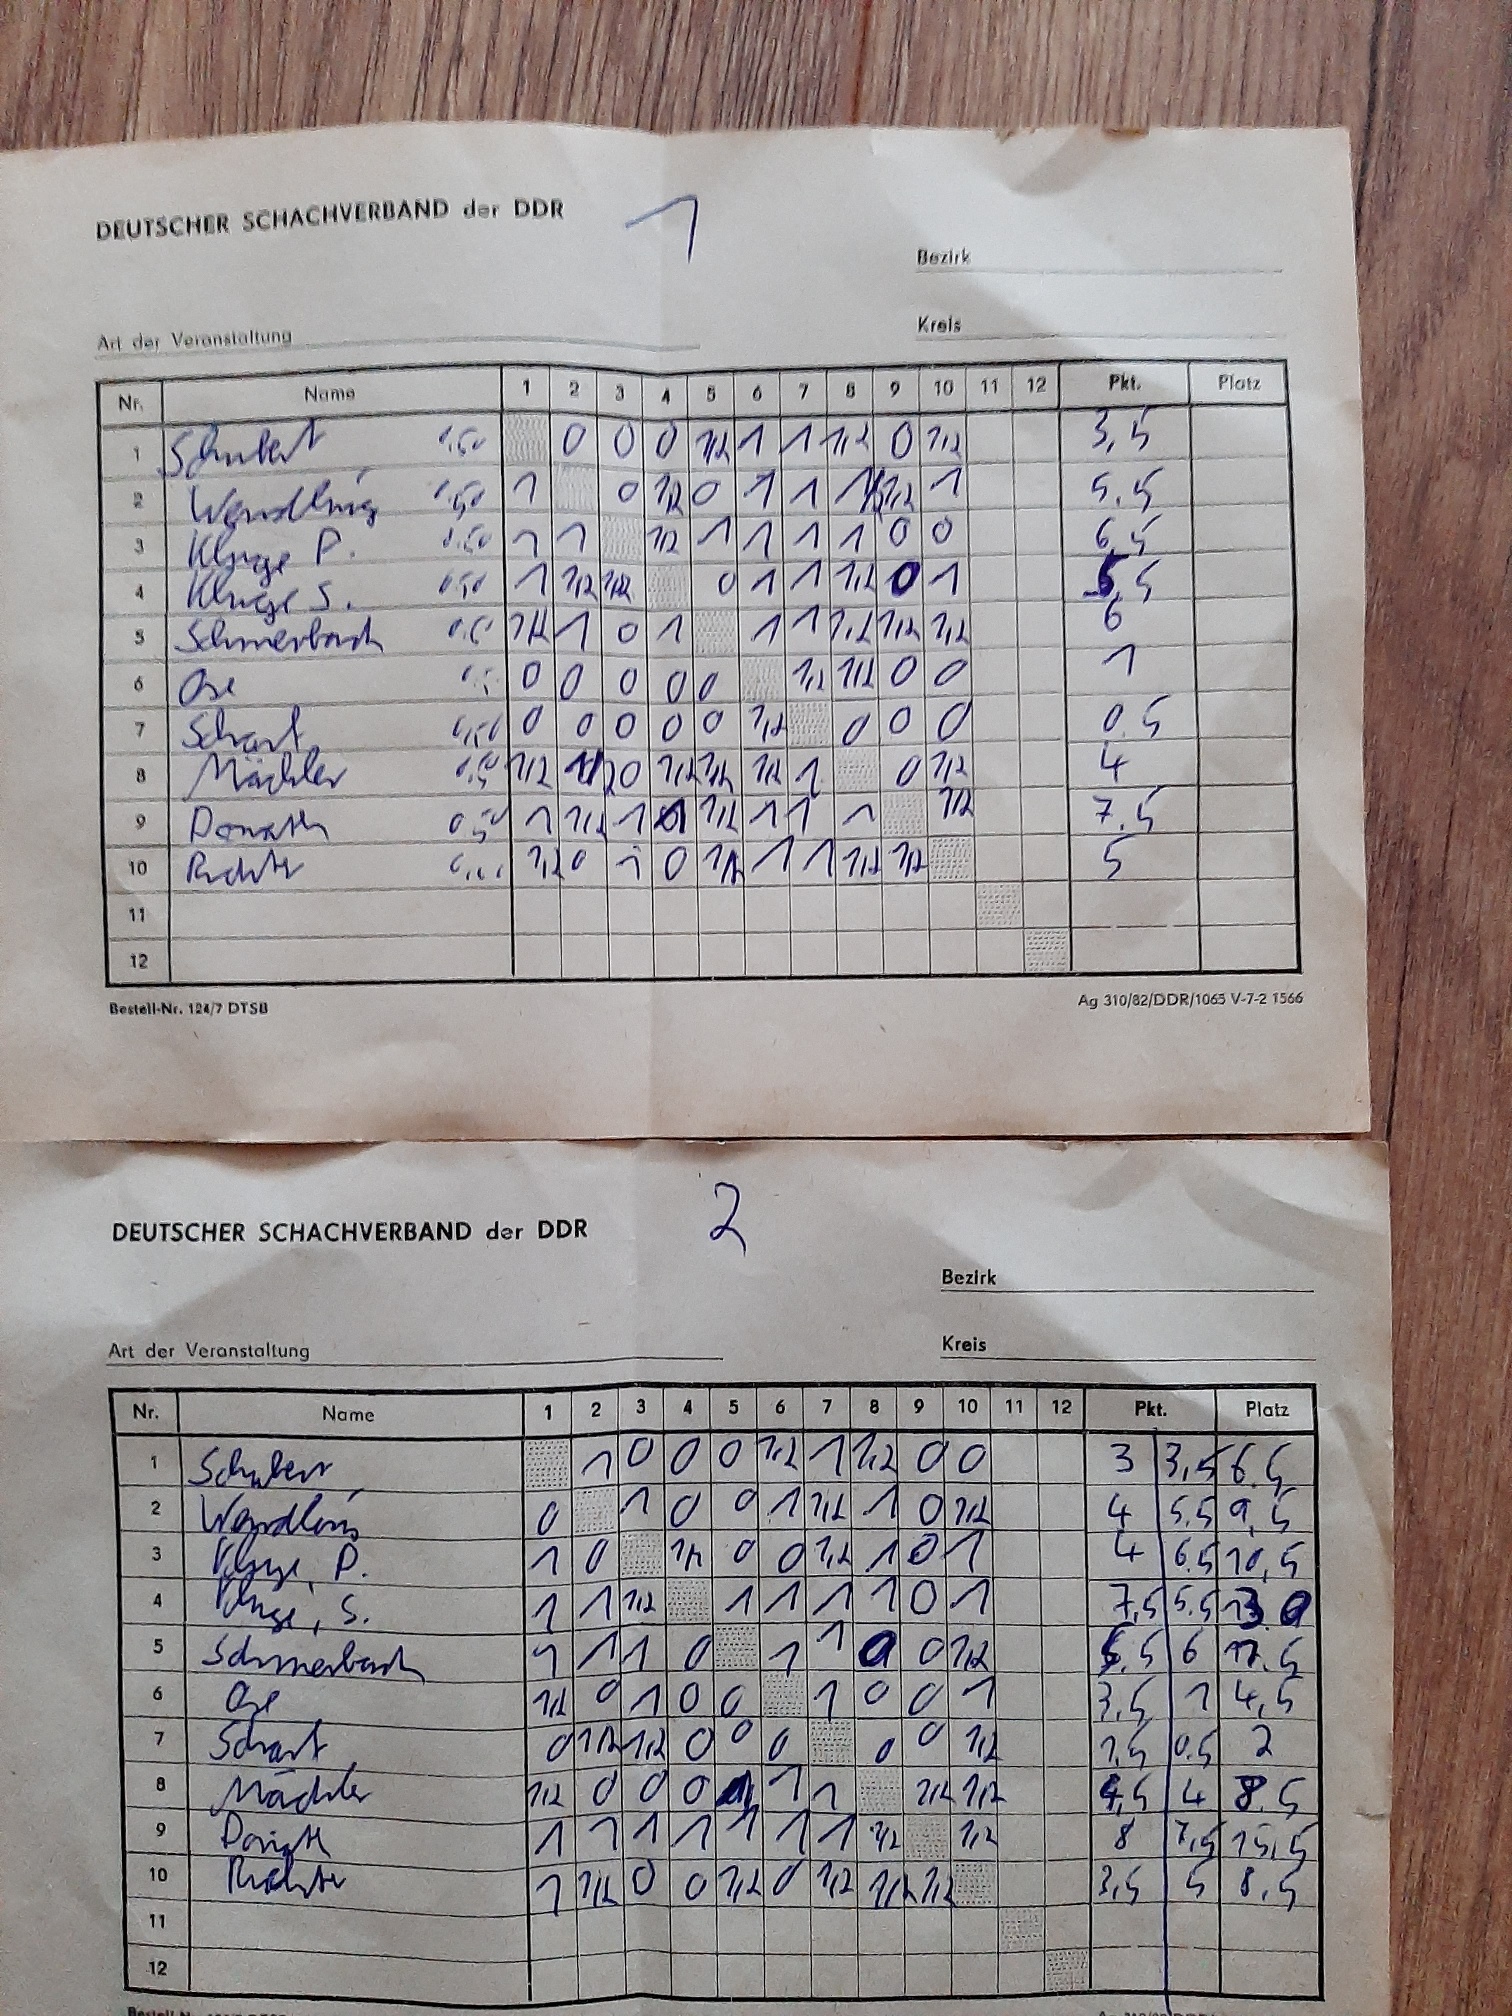 DEUTSCHER SCHACHVERBAND der DDR 1
Bezirk
Art der Veranstaltung Kreis
Nr. Name 1 2 3 4 5 6 7 8 9 10 11 12 Pkt. Platz
1 Schubert 0,50 0 0 0 1/2 1 1 1/2 0 1/2 3,5
2 Wendling 0,50 1 0 1/2 0 1 1 1/2 1 5,5
3 Kluge P. 0,50 1 1 1/2 1 1 1 1 0 0 6,5
4 Kluge S. 0,50 1 1/2 1/2 0 1 1 1/2 0 1 5,5
5 Schmerbach 1/2 1 0 1 1 1 1/2 1/2 1/2 6
6 Ose 0 0 0 0 0 1/2 1/2 0 0 1
7 Schart 0,50 0 0 0 0 0 1/2 0 0 0 0.5
8 Mächler 0,50 1/2 0 1/2 1/2 1/2 1 0 1/2 4
9 Donath 0,50 1 1/2 1 1/2 1 1 1 1/2 7.5
10 Richter 1/2 0 1 0 1/2 1 1 1/2 1/2 5
11
12
Bestell-Nr. 124/7 DTSB Ag 310/82/DDR/1065 V-7-2 1566
DEUTSCHER SCHACHVERBAND der DDR 2
Bezirk
Art der Veranstaltung Kreis
Nr. Name 1 2 3 4 5 6 7 8 9 10 11 12 Pkt. Platz
1 Schubert 1 0 0 0 1/2 1 1/2 0 0 3 3,5 6.5
2 Wendling 0 1 0 0 1 1/2 1 0 1/2 4 5.5 9,5
3 Kluge, P. 1 0 1/2 0 0 1/2 1 0 1 4 6.5 10,5
4 Kluge, S. 1 1 1/2 1 1 1 1 0 1 7,5 5.5 13 0
5 Schmerbach 1 1 1 0 1 1 0 0 1/2 5.5 6 11.5
6 Ose 1/2 0 1 0 0 1 0 0 1 3,5 1 4,5
7 Schart 0 1/2 1/2 0 0 0 0 0 1/2 1,5 0.5 2
8 Mächler 1/2 0 0 0 1 1 1 1/2 1/2 4,5 4 8.5
9 Donath 1 1 1 1 1 1 1 1/2 1/2 8 7,5 15,5
10 Richter 1 1/2 0 0 1/2 0 1/2 1/2 1/2 3,5 5 8,5
11
12